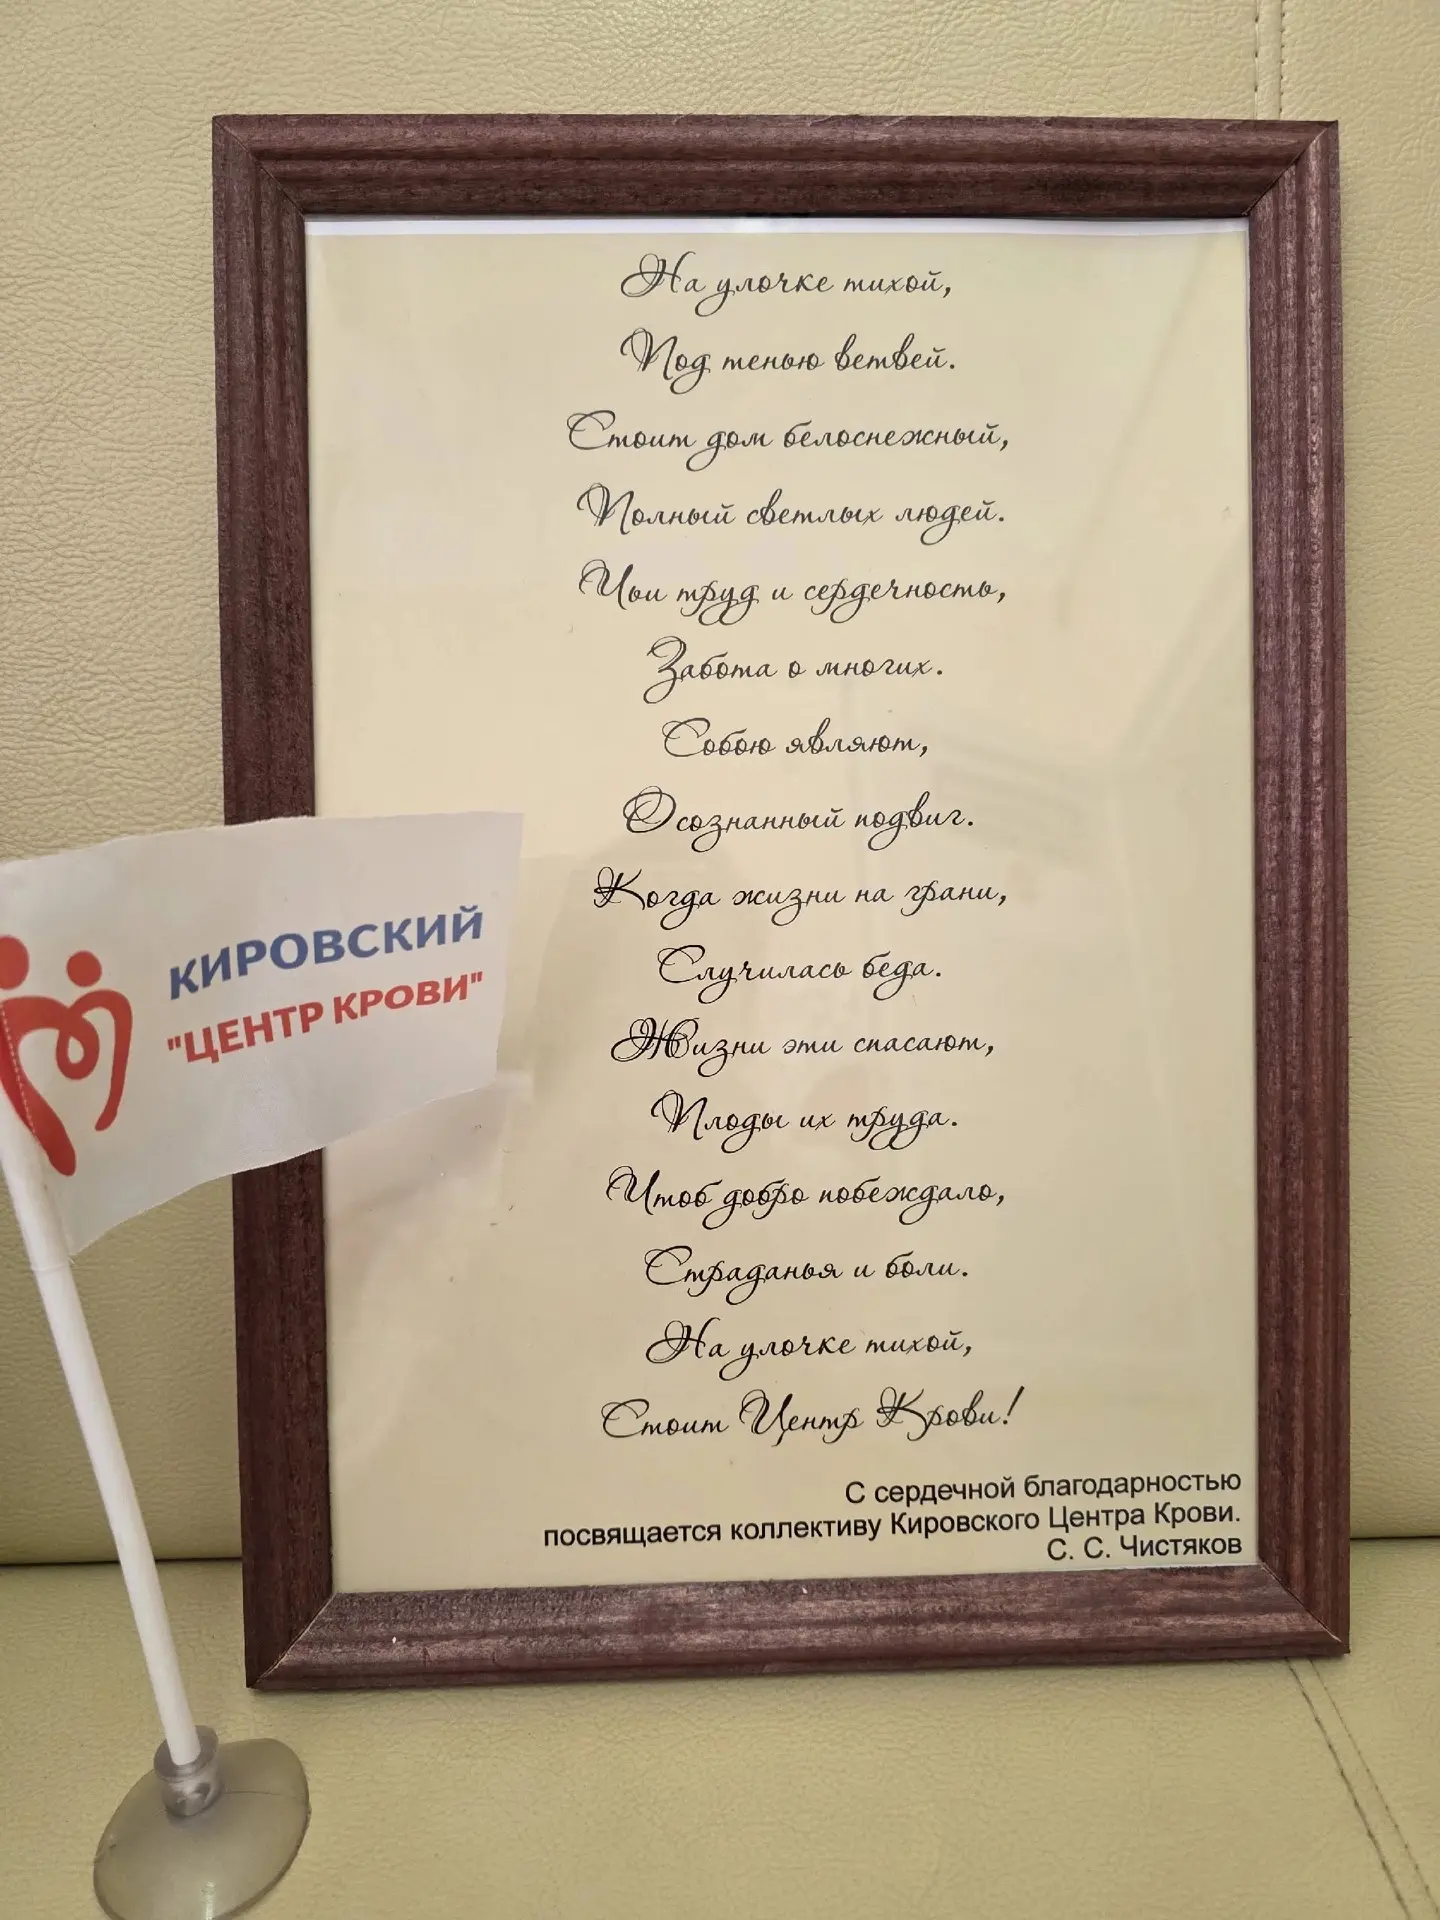 На улочке тихой,
Под тенью ветвей.
Стоит дом белоснежный,
Полный светлых людей.
Чьи труд и сердечность,
Забота о многих.
Собою являют,
Осознанный подвиг.
Когда жизни на грани,
Случилась беда.
Жизни эти спасают,
Плоды их труда.
Чтоб добро побеждало,
Страданья и боли.
На улочке тихой,
Стоит Центр Крови!
С сердечной благодарностью
посвящается коллективу Кировского Центра Крови.
С. С. Чистяков
КИРОВСКИЙ
"ЦЕНТР КРОВИ"